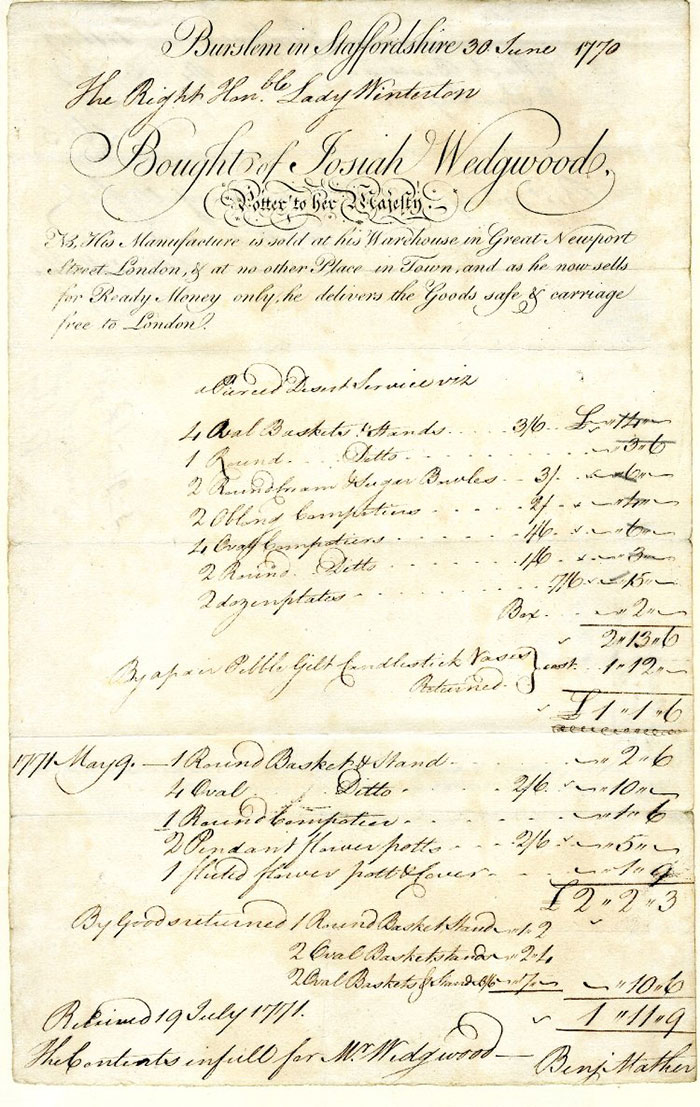 Burslem in Staffordshire 30 June 1770
The Right Hon.ble Lady Winterton
Bought of Josiah Wedgwood,
Potter to her Majesty.
NB, His Manufacture is sold at his Warehouse in Great Newport
Street London, & at no other Place in Town, and as he now sells
for Ready Money only, he delivers the Goods safe & carriage
free to London.
a Pierced Desert Service viz
4 Oval Baskets & Stands 3/6 £ " 14 "
1 Round Ditto " 3 " 6
2 Round Cream & Sugar Bowles 3/. " 6 "
2 Oblong Compotiers 2/. " 4 "
4 Oval Compotiers 1/6 " 6 "
2 Round Ditto 1/6 " 3 "
2 dozen plates 7/6 " 15 "
Box " 2 "
2 " 13 " 6
By a pair Pebble Gilt Candlestick Vases } cost 1 " 12 "
Returned
£ 1 " 1 " 6
1771 May 9. 1 Round Basket & Stand " 2 " 6
4 Oval Ditto 2/6 " 10 "
1 Round Compotier " 1 " 6
2 Pendant flower potts 2/6 " 5 "
1 fluted flower pott & Cover " 1 " 9
£ 2 " 2 " 3
By Goods returned 1 Round Basket Stand " 1 " 2
2 Oval Basket stands " 2 "
2 Oval Baskets & Stands " 7 " " 10 " 6
1 " 11 " 9
Received 19 July 1771.
The Contents in full for Mr. Wedgwood
Benj Mather